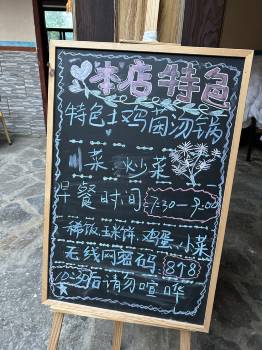 本店特色
特色土鸡闷汤锅
川菜 炒菜
早餐时间 7:30-9:00
稀饭、玉米饼、鸡蛋、小菜
无线网密码 8个8
后请勿喧哗